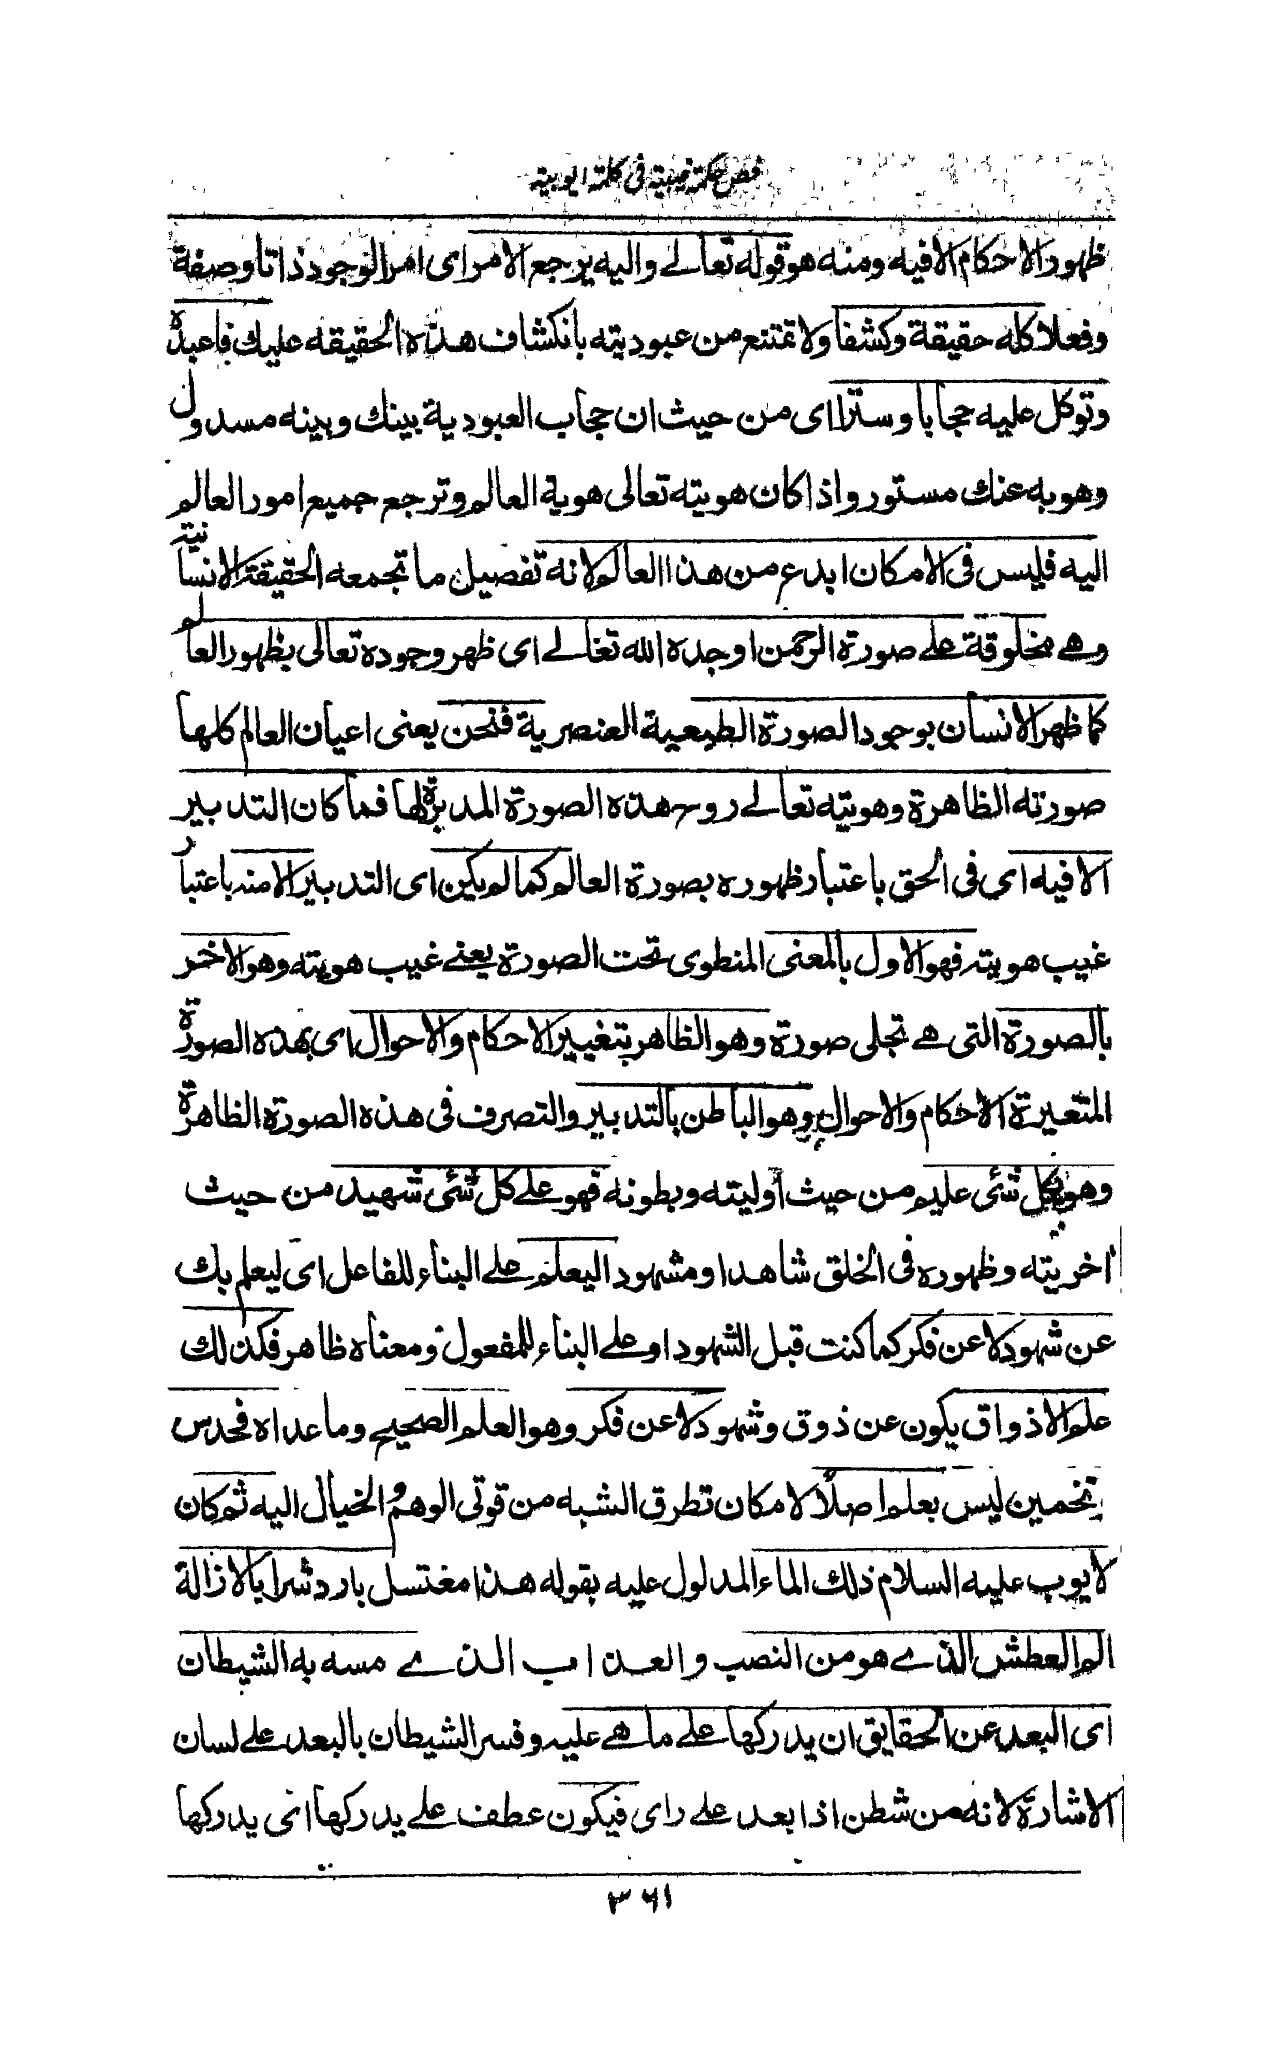 فص حكمة غيبية فى كلمة ايوبية
ظهور الاحكام الافيه ومنه هو قوله تعالے واليه يرجع الامر اى امر الوجود ذاتا وصفة
وفعلا كله حقيقة وكشفا ولا تمتنع من عبوديته بانكشاف هذه الحقيقه عليك فاعبده
وتوكل عليه حجابا وسترا اى من حيث ان حجاب العبودية بينك وبينه مسدول
وهو به عنك مستور واذا كان هويته تعالى هوية العالم وترجع جميع امور العالم
اليه فليس فى الامكان ابدع من هذا العالم لانه تفصيل ما تجمعه الحقيقة الانسانية
وهے مخلوقة علے صورة الرحمن اوجده الله تعالے اى ظهر وجوده تعالى بظهور العالم
كما ظهر الانسان بوجود الصورة الطبيعية العنصرية فنحن يعنى اعيان العالم كلها
صورته الظاهرة وهويته تعالے روح هذه الصورة المدبرة لها فما كان التدبير
الا فيه اى فى الحق باعتبار ظهوره بصورة العالم كما لم يكن اى التدبير الا منه باعتبار
غيب هويته فهو الاول بالمعنى المنطوى تحت الصورة يعنے غيب هويته وهو الاخر
بالصورة التى هے تجلى صورة وهو الظاهر بتغيير الاحكام والاحوال اى بهذه الصورة
المتغيرة الاحكام والاحوال وهو الباطن بالتدبير والتصرف فى هذه الصورة الظاهرة
وهو بكل شئى عليم من حيث أوليته وبطونه فهو علے كل شئى شهيد من حيث
اخريته وظهوره فى الخلق شاهدا ومشهودا ليعلم علے البناء للفاعل اى ليعلم بك
عن شهود لا عن فكر كما كنت قبل الشهود او علے البناء للمفعول ومعناه ظاهر فكذلك
علم الاذواق يكون عن ذوق وشهود لا عن فكر وهو العلم الصحيح وما عداه فحدس
وتخمين ليس بعلم اصلاً لامكان تطرق الشبه من قوتى الوهم والخيال اليه ثم كان
لايوب عليه السلام ذلك الماء المدلول عليه بقوله هذا مغتسل بارد شرابا لازالة
الم العطش الذے هو من النصب والعذاب الذے مسه به الشيطان
اى البعد عن الحقايق ان يدركها علے ما هے عليه وفسر الشيطان بالبعد علے لسان
الاشارة لانه من شطن اذا بعد علے راى فيكون عطف علے يدركها اى يدركها
٣٦١